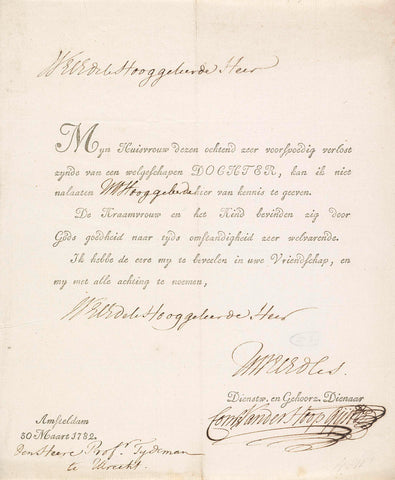 WelEdele Hooggeleerde Heer
Myn Huisvrouw dezen ochtend zeer voorspoedig verlost
zynde van een welgeschapen DOCHTER, kan ik niet
nalaten UW Hooggeleerde hier van kennis te geeven.
De Kraamvrouw en het Kind bevinden zig door
Gods goedheid naar tyds omstandigheid zeer welvarende.
Ik hebbe de eere my te beveelen in uwe Vriendschap, en
my met alle achting te noemen,
WelEdele Hooggeleerde Heer
UWelEdles.
Dienstw. en Gehoorz. Dienaar
van der Hoop
Amsteldam
30 Maart 1782.
den Heere Prof.r Tydeman
te Utrecht.